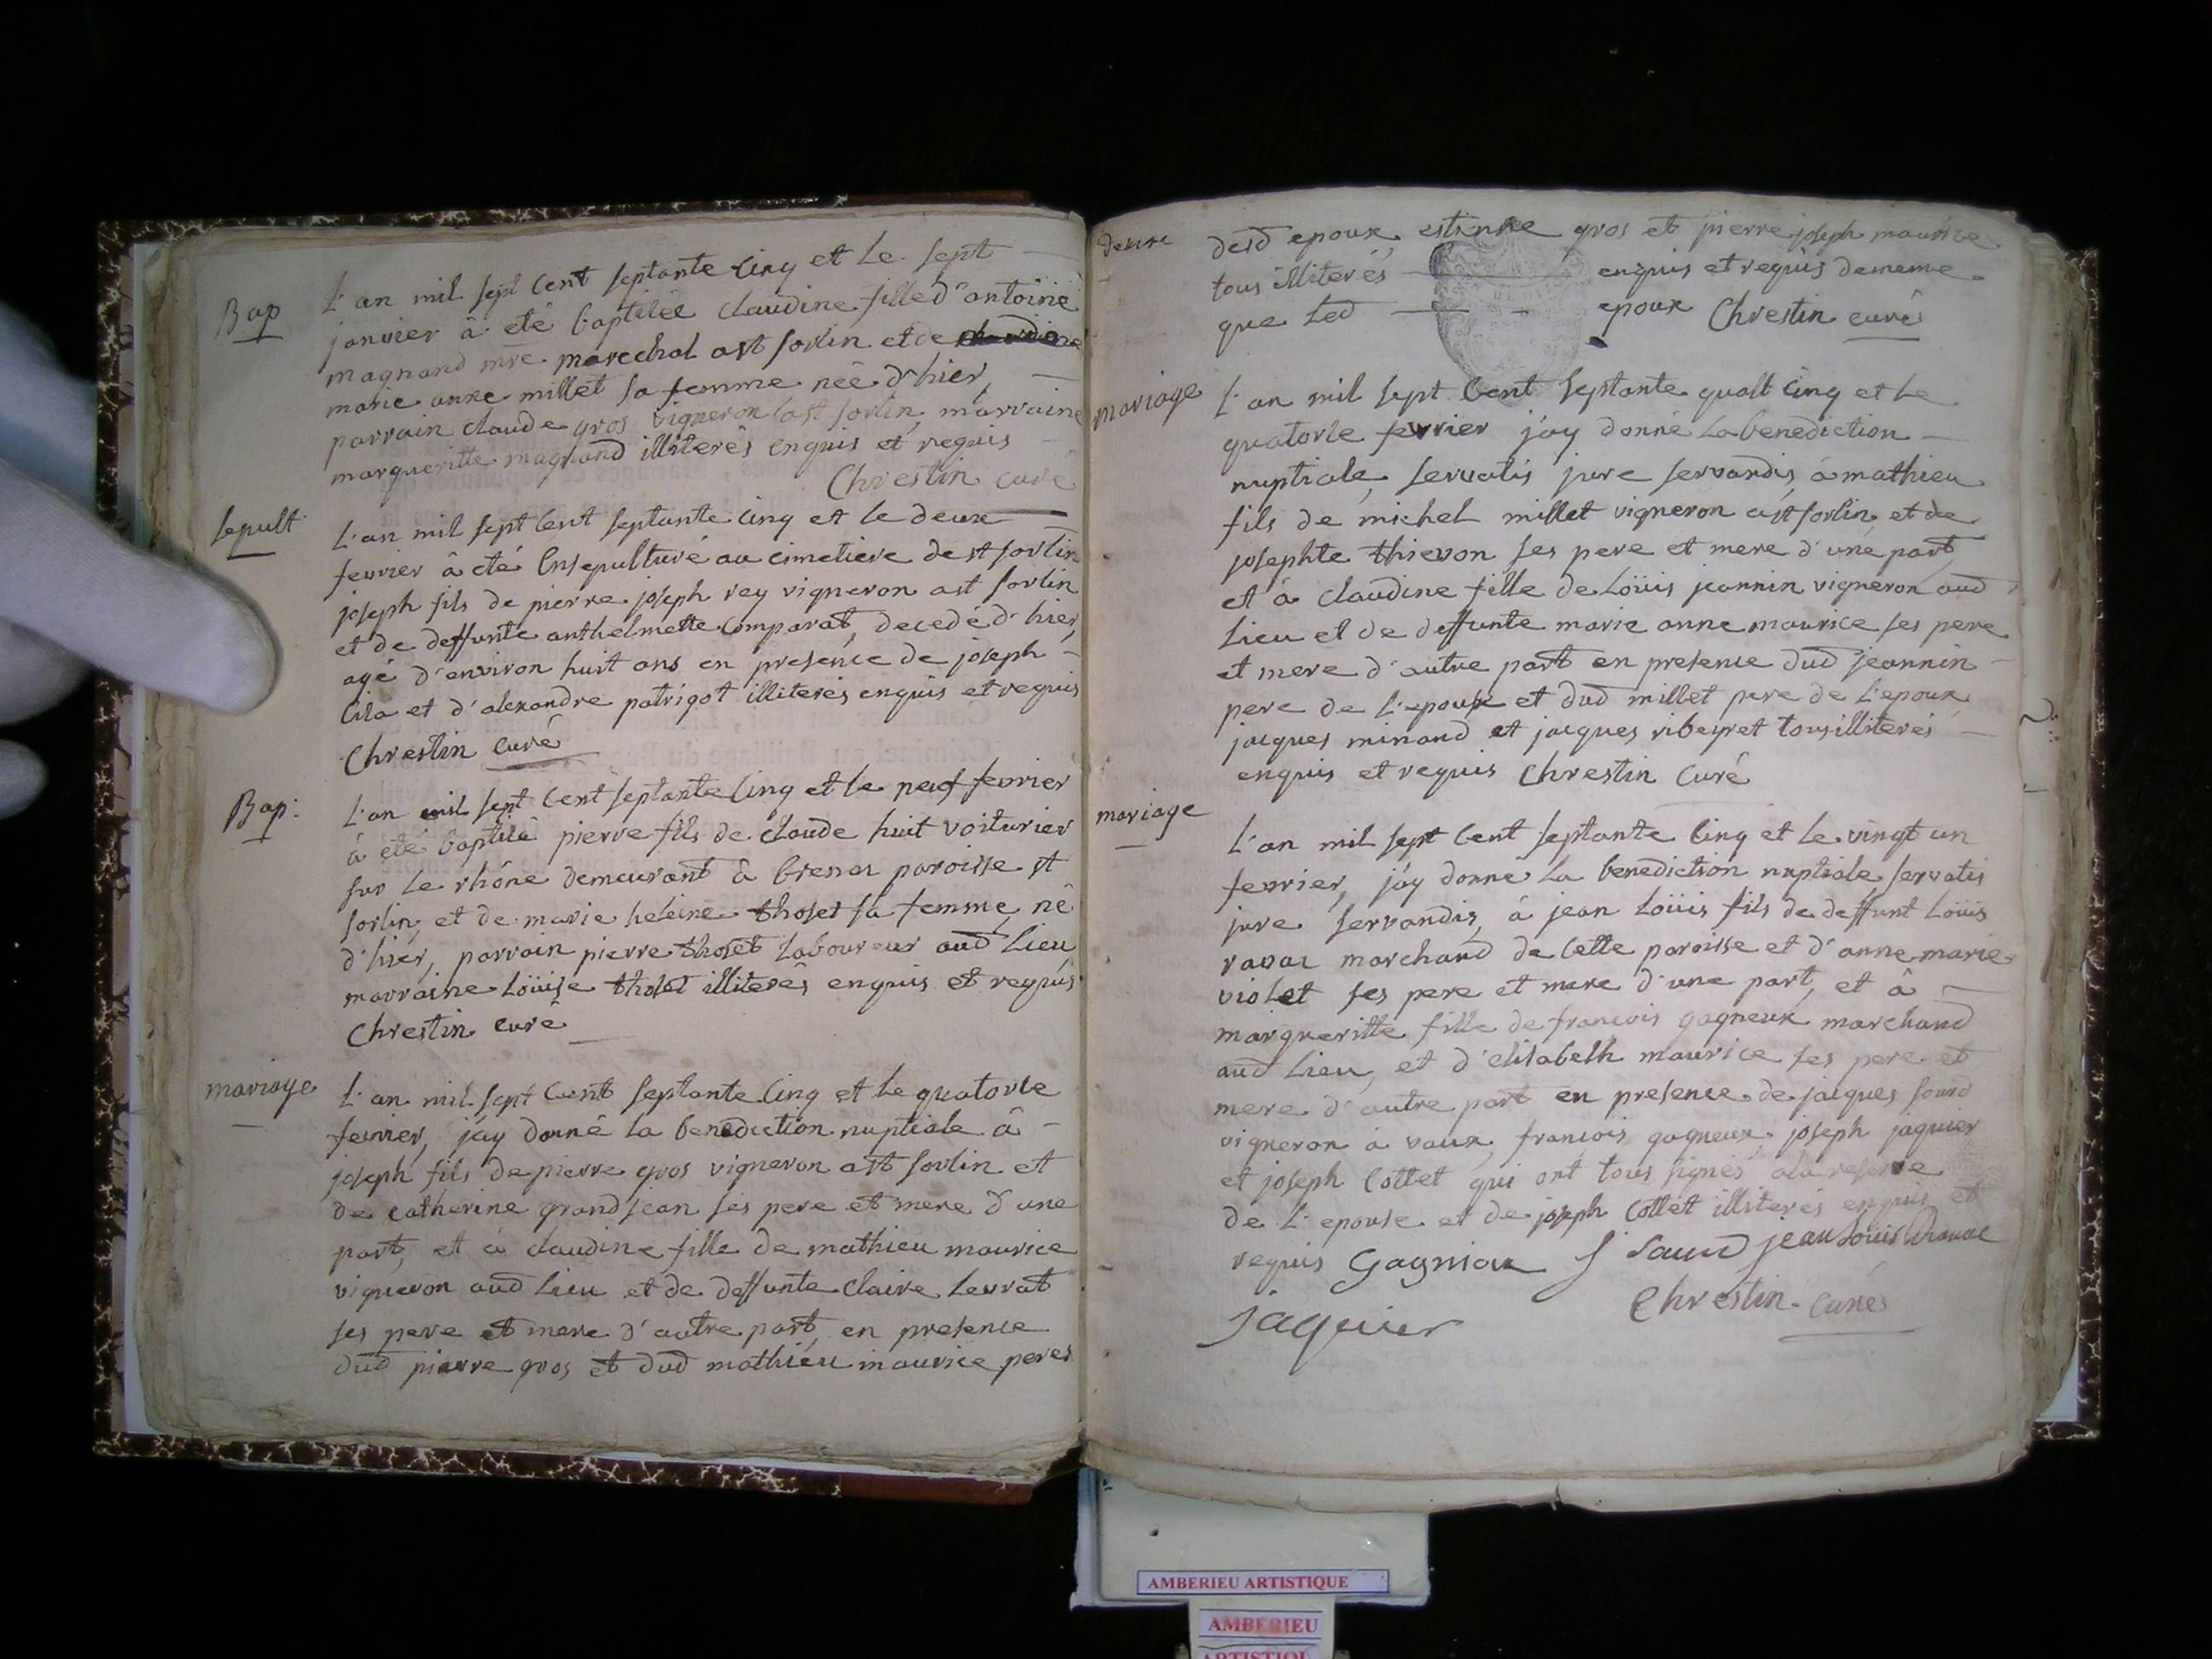 Bap
L'an mil sept cent septante cinq et le sept
janvier à eté baptisée claudine fille d'antoine
magnand mre marechal ast sorlin et de
marie anne millet sa femme née d'hier,
parrain claude gros vigneron ast sorlin, marraine
margueritte magnand illiterés enquis et requis
Chrestin curé
sepult
L'an mil sept cent septante cinq et le deux
fevrier à eté Ensepulturé au cimetiere de st sorlin
joseph fils de pierre joseph rey vigneron ast sorlin
et de deffunte anthelmette comparat, decedé d'hier,
agé d'environ huit ans en presence de joseph
et d'alexandre patrigot illiterés enquis et requis
Chrestin curé
Bap:
L'an mil sept cent septante cinq et le neuf fevrier
à eté baptisé pierre fils de claude huit voiturier
sur le rhône demeurant à paroisse st
sorlin, et de marie heleine thoset sa femme, né
d'hier, parrain pierre thoset laboureur aud lieu
marraine Loüise thoset illiterés enquis et requis
Chrestin curé
mariage
L'an mil sept cent septante cinq et le quatorse
fevrier, j'ay donné la benediction nuptiale à
joseph fils de pierre gros vigneron ast sorlin et
de catherine grandjean ses pere et mere d'une
part, et à claudine fille de mathieu maurice
vigneron aud lieu et de deffunte claire Levrat
ses pere et mere d'autre part, en presence
dud pierre gros et dud mathieu maurice peres
desd epoux, estienne gros et pierre joseph maurice
tous illiterés enquis et requis dememe
que Led epoux Chrestin curé
mariage
L'an mil sept cent septante quatt cinq et le
quatorse fevrier j'ay donné la benediction
nuptiale, servatis jure servandis, à mathieu
fils de michel millet vigneron ast sorlin, et de
josephte thievon ses pere et mere d'une part,
et à claudine fille de Loüis jeannin vigneron aud
Lieu et de deffunte marie anne maurice ses pere
et mere d'autre part en presence dud jeannin
pere de L'epouse et dud millet pere de L'epoux
jacques minand et jacques ribeyret tous illiterés
enquis et requis Chrestin Curé
mariage
L'an mil sept cent septante cinq et le vingt un
fevrier, j'ay donné la benediction nuptiale servatis
jure servandis, à jean Loüis fils de deffunt Loüis
ravat marchand de cette paroisse et d'anne marie
violet ses pere et mere d'une part, et à
margueritte fille de francois gagneux marchand
aud Lieu, et d'elisabeth maurice ses pere et
mere d'autre part en presence de jacques
vigneron à vaux, francois gagneux, joseph jaquier
et joseph Cottet qui ont tous signés ala reserve
de L'epouse et de joseph Cottet illiterés enquis et
requis Gagniou jean Loüis
jaquier Chrestin Curé
AMBERIEU ARTISTIQUE
AMBERIEU
ARTISTIQUE